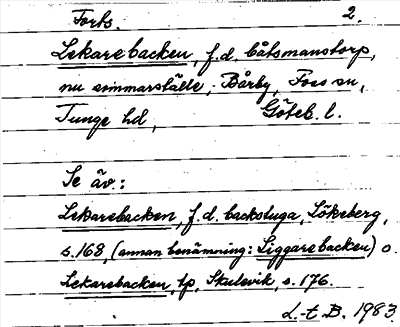 Forts. 2.
Lekarebacken, f.d. båtsmanstorp,
nu sommarställe, Bärby, Foss sn,
Tunge hd, Göteb. l.
Se äv.:
Lekarebacken, f.d. backstuga, Lökeberg,
s. 168, (annan benämning: Siggarebacken) o.
Lekarebacken, tp, Skulevik, s. 176.
L-t B. 1983